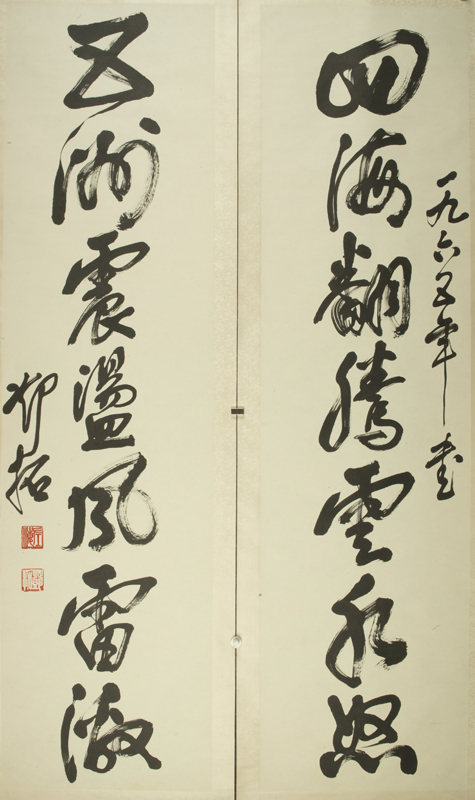 一九六五年
四海翻騰雲水怒
五洲震盪風雷激
鄧拓